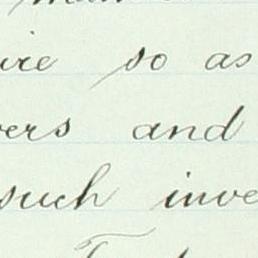 ire so as
vers and
such inve